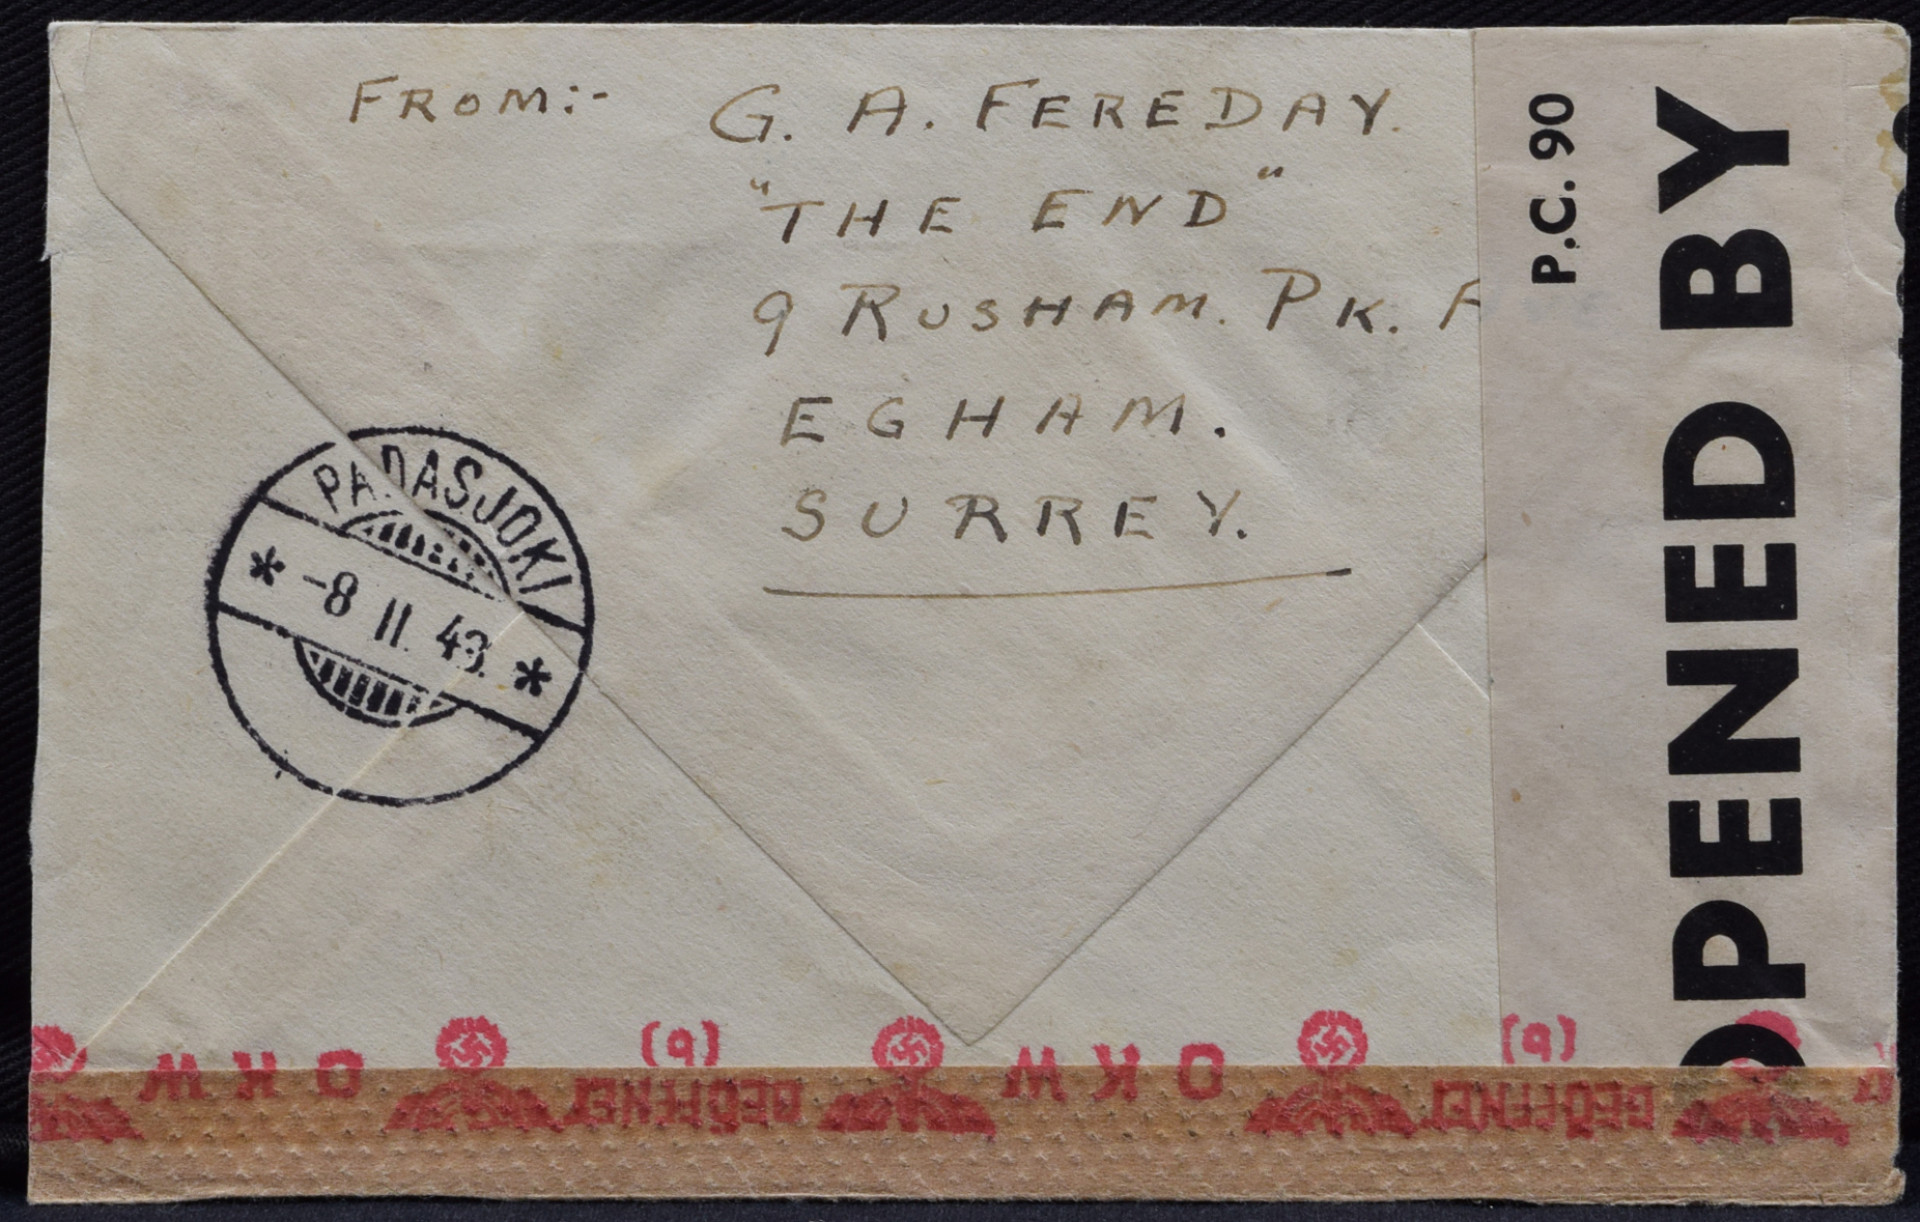 FROM:- G. A. FEREDAY.
"THE END"
9 RUSHAM. PK.
EGHAM.
SURREY.
PADASJOKI
* -8 II. 43. *
P.C. 90
OPENED BY
OKW (b) OKW (b)
GEÖFFNET GEÖFFNET